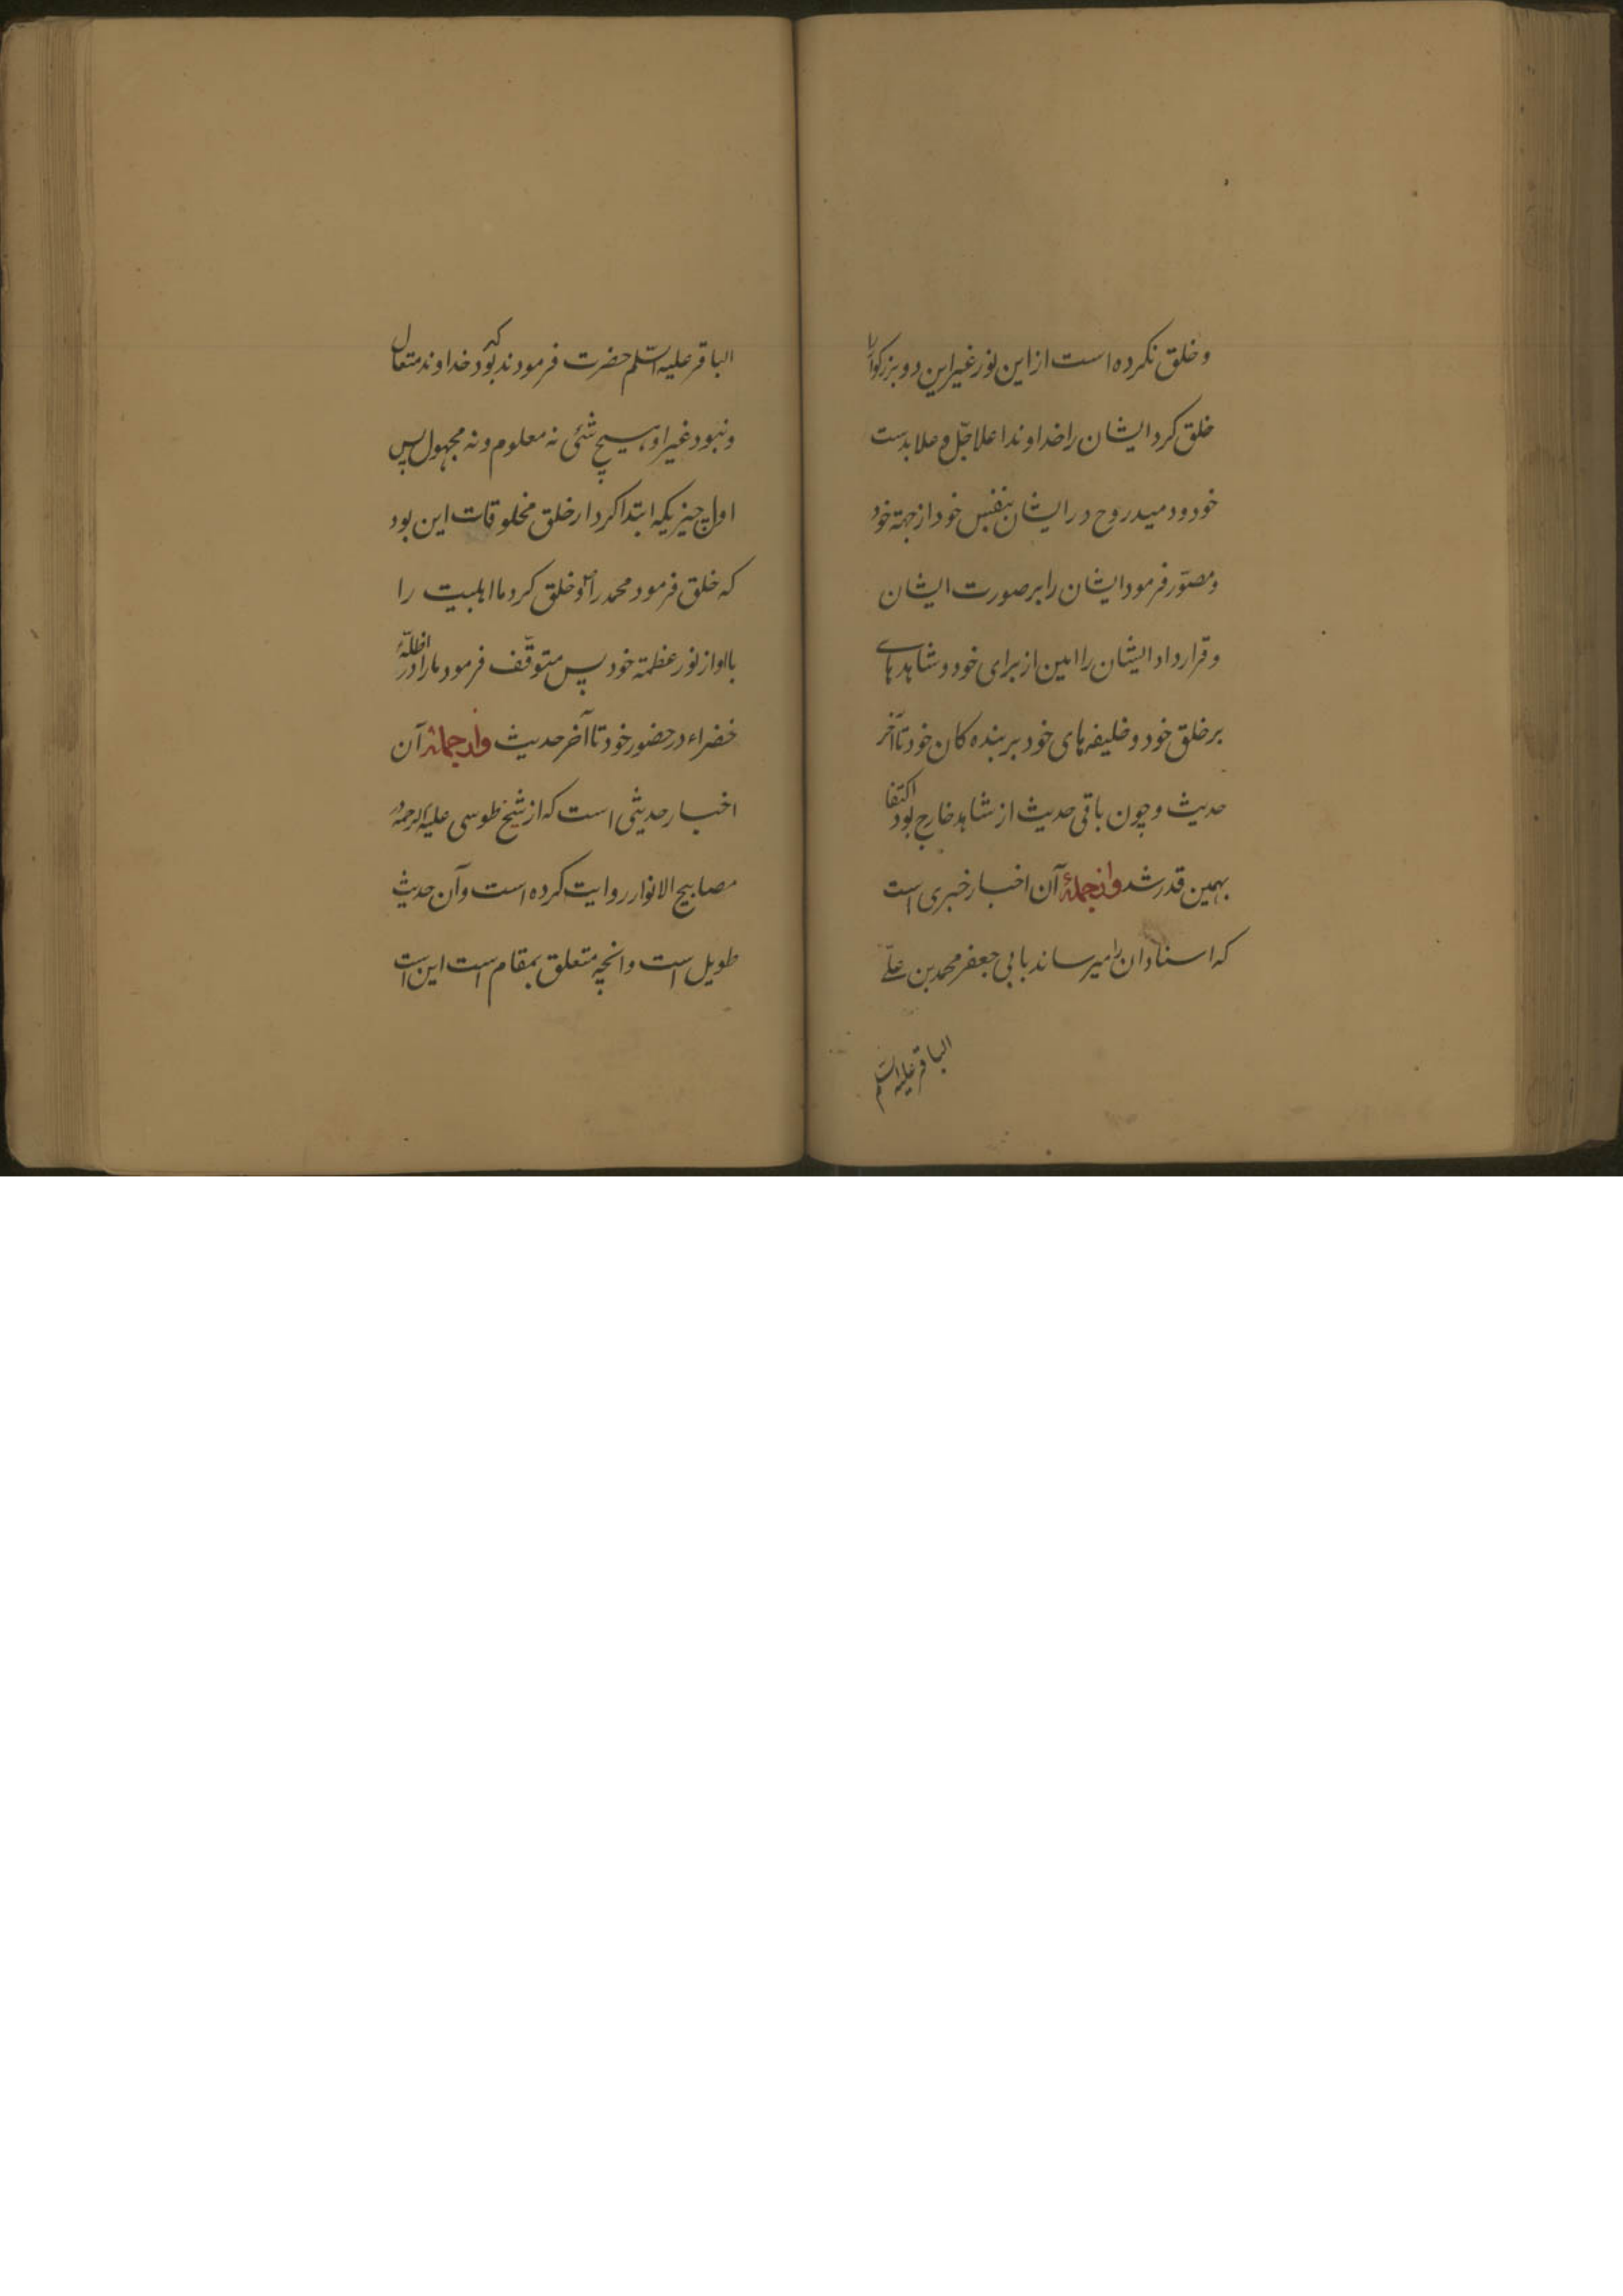 و خلق نکرده است از این نور غیر این دو بزرکوار را
خلق کرد ایشان را خداوند اعلا جلّ و علا بدست
خود و دمید روح در ایشان بنفس خود از جهة خود
و مصوّر فرمود ایشان را بر صورت ایشان
و قرار داد ایشان را امین از برای خود و شاهدهای
بر خلق خود و خلیفه های خود بر بنده کان خود تا آخر
حدیث و چون باقی حدیث از شاهد خارج بود اکتفا
بهمین قدر شد وازجملهٔ آن اخبار خبری است
که اسناد ان را میرساند بابی جعفر محمد بن علیّ
الباقر علیه السّلم
الباقر علیه السّلم حضرت فرمودند که بود خداوند متعال
و نبود غیر او هیچ شئی نه معلوم و نه مجهول پس
اول چیزیکه ابتدا کرد از خلق مخلوقات این بود
که خلق فرمود محمد را ص و خلق کرد ما اهلبیت را
بااو از نور عظمة خود پس متوقّف فرمود ما را در اظلّهٔ
خضراء در حضور خود تا آخر حدیث وازجملهٔ آن
اخبار حدیثی است که از شیخ طوسی علیه الرحمه در
مصابیح الانوار روایت کرده است و آن حدیث
طویل است و انچه متعلق بمقام است این است